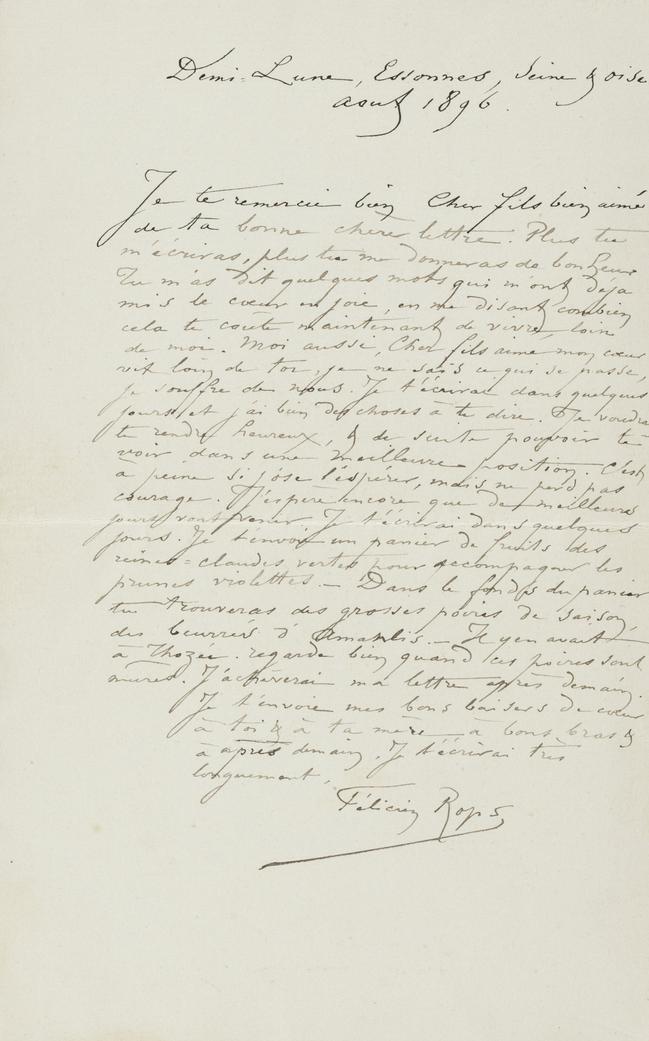 Demi-Lune, Essonnes, Seine & oise
aout 1896.
Je te remercie bien Cher fils bien aimé
de ta bonne chère lettre. Plus tu
m'écriras, plus tu me donneras de bonheur
Tu m'as dit quelques mots qui m'ont déja
mis le cœur en joie, en me disant combien
cela te coute maintenant de vivre, loin
de moi. Moi aussi, Cher fils aimé mon cœur
vit loin de toi, je ne sais ce qui se passe,
je souffre de nous. Je t'écrirai dans quelques
jours et j'ai bien des choses à te dire. Je voudrais
te rendre heureux, & de suite pouvoir te
voir dans une meilleure position. C'est
à peine si j'ose l'espérer, mais ne perd pas
courage. J'espère encore que de meilleurs
jours vont venir. Je t'écrirai dans quelques
jours. Je t'envoie un panier de fruits des
reines=claudes vertes pour accompagner les
prunes violettes.— Dans le fonds du panier
tu trouveras des grosses poires de saison,
des beurrés d'Amanlis.— Il y en avait
à Thozée. regarde bien quand ces poires sont
mures. J'achèverai ma lettre après demain.
Je t'envoie mes bons baisers de cœur
à toi & à ta mère, à bons bras &
à après demain. Je t'écrirai très
longuement,
Félicien Rops